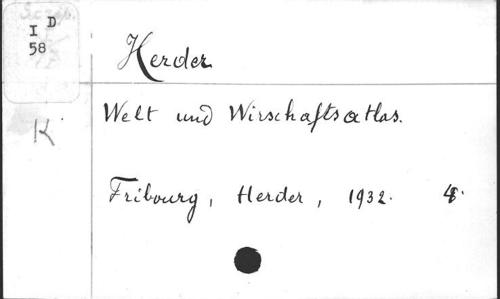 I D
58
K
Herder
Welt und Wirschaftsatlas.
Fribourg, Herder, 1932. 4.